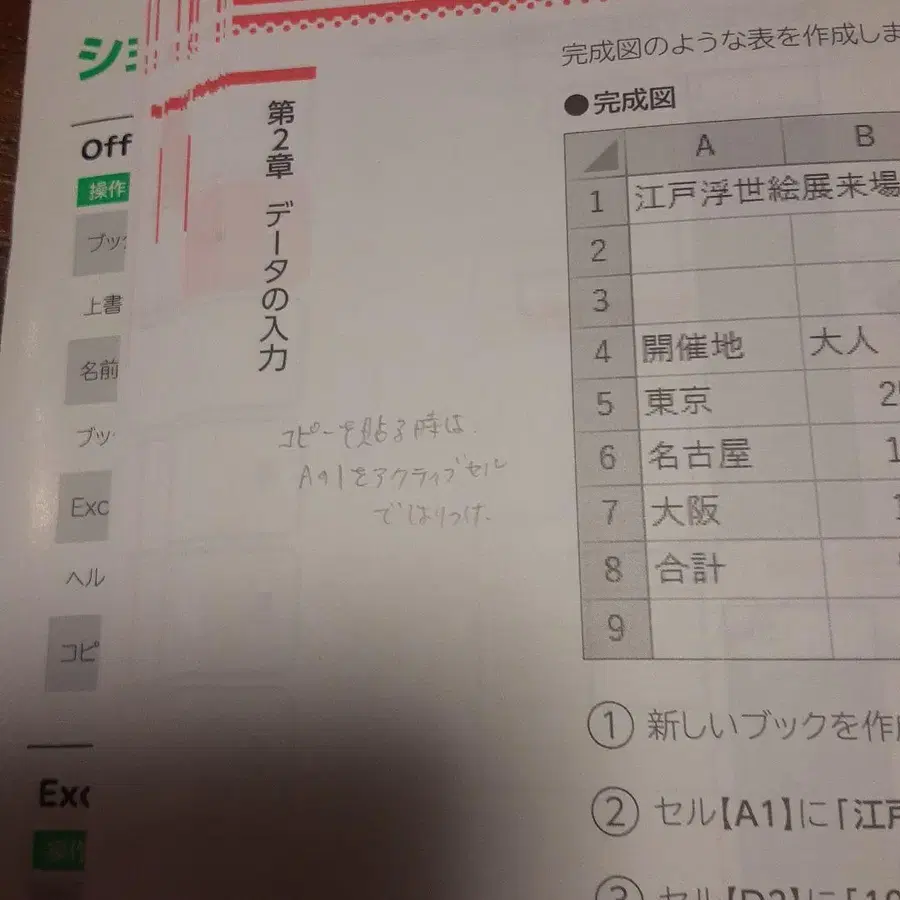 シ
Off
操作
ブック
上書
名前
ブッ
Exc
ヘル
コピ
Exc
操作
第2章 データの入力
コピーを貼る時は
Aの1をアクティブセル
ではりつけ.
完成図のような表を作成しま
●完成図
A B
1 江戸浮世絵展来場
2
3
4 開催地 大人
5 東京 2
6 名古屋 1
7 大阪 1
8 合計
9
① 新しいブックを作
② セル【A1】に「江戸
③ セル【D2】に「10